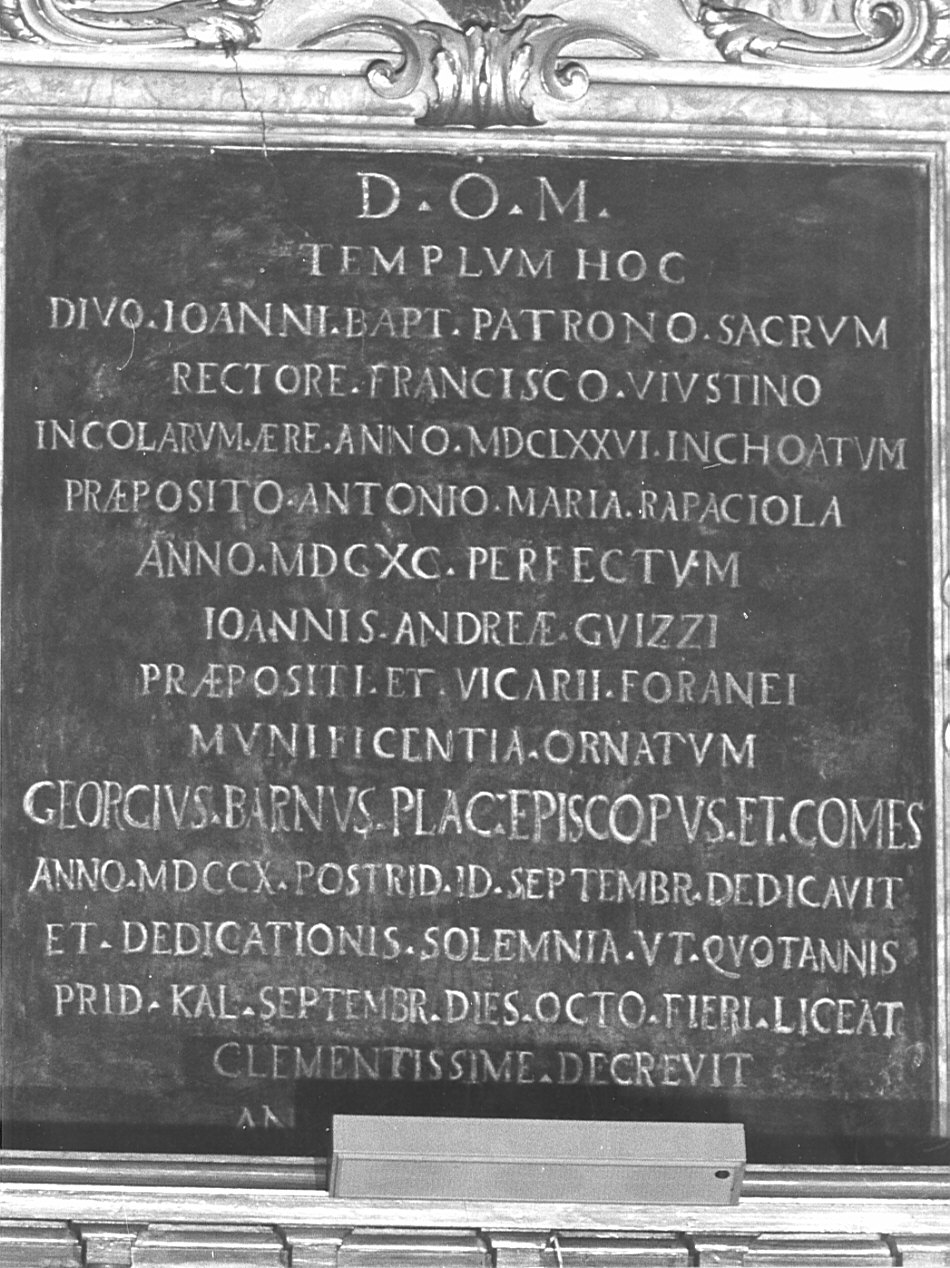 D. O. M.
TEMPLVM HOC
DIVO. IOANNI. BAPT. PATRONO. SACRVM
RECTORE. FRANCISCO. VIVSTINO
INCOLARVM. ÆRE. ANNO. MDCLXXVI. INCHOATVM
PRÆPOSITO. ANTONIO. MARIA. RAPACIOLA
ANNO. MDCXC. PERFECTVM
IOANNIS. ANDREÆ. GVIZZI
PRÆPOSITI. ET. VICARII. FORANEI
MVNIFICENTIA. ORNATVM
GEORGIVS. BARNVS. PLAC: EPISCOPVS. ET. COMES
ANNO. MDCCX. POSTRID. ID. SEPTEMBR. DEDICAVIT
ET. DEDICATIONIS. SOLEMNIA. VT. QVOTANNIS
PRID. KAL. SEPTEMBR. DIES. OCTO. FIERI. LICEAT
CLEMENTISSIME. DECREVIT